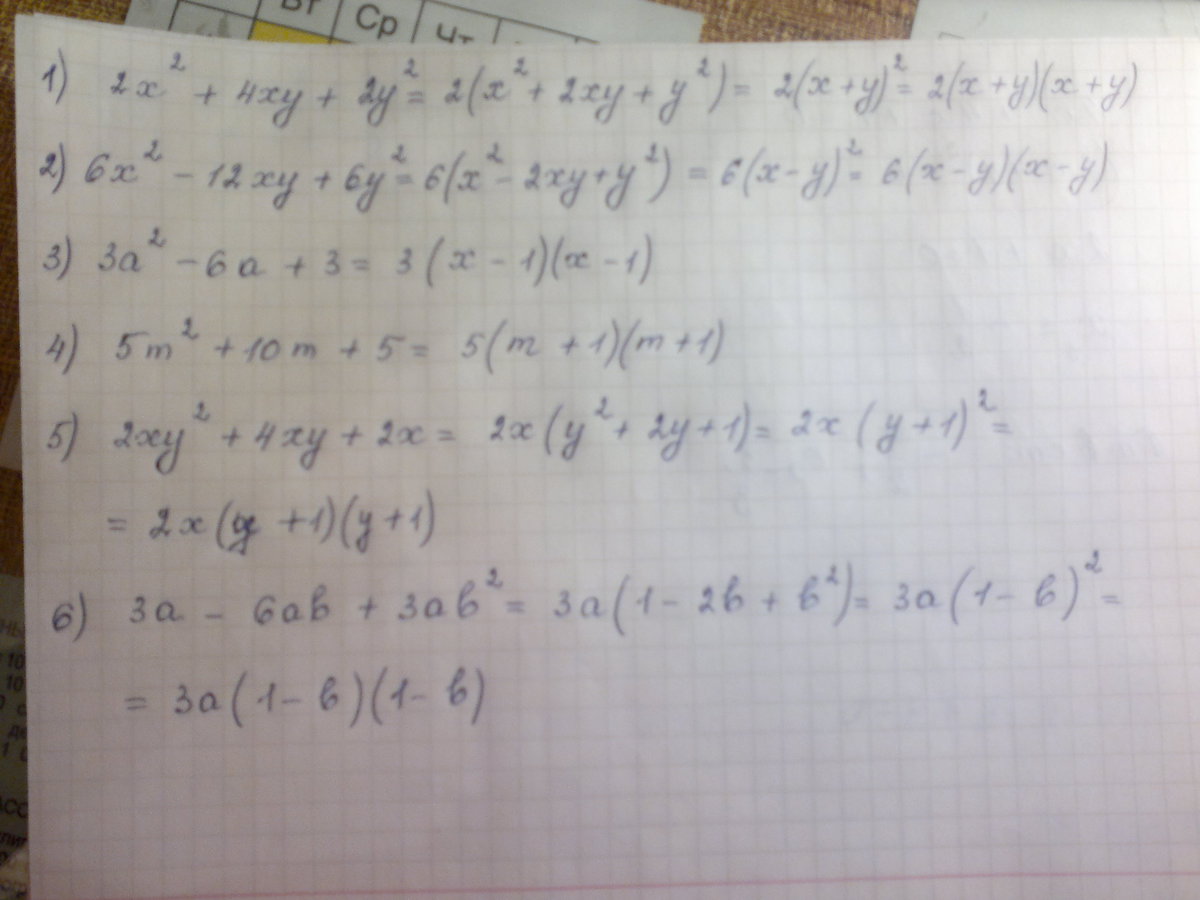 Вт
Ср
Чт
1) 2x² + 4xy + 2y² = 2(x² + 2xy + y²) = 2(x+y)² = 2(x+y)(x+y)
2) 6x² - 12xy + 6y² = 6(x² - 2xy + y²) = 6(x-y)² = 6(x-y)(x-y)
3) 3a² - 6a + 3 = 3(x - 1)(x - 1)
4) 5m² + 10m + 5 = 5(m + 1)(m + 1)
5) 2xy² + 4xy + 2x = 2x(y² + 2y + 1) = 2x(y+1)² =
= 2x(y + 1)(y + 1)
6) 3a - 6ab + 3ab² = 3a(1 - 2b + b²) = 3a(1 - b)² =
= 3a(1 - b)(1 - b)